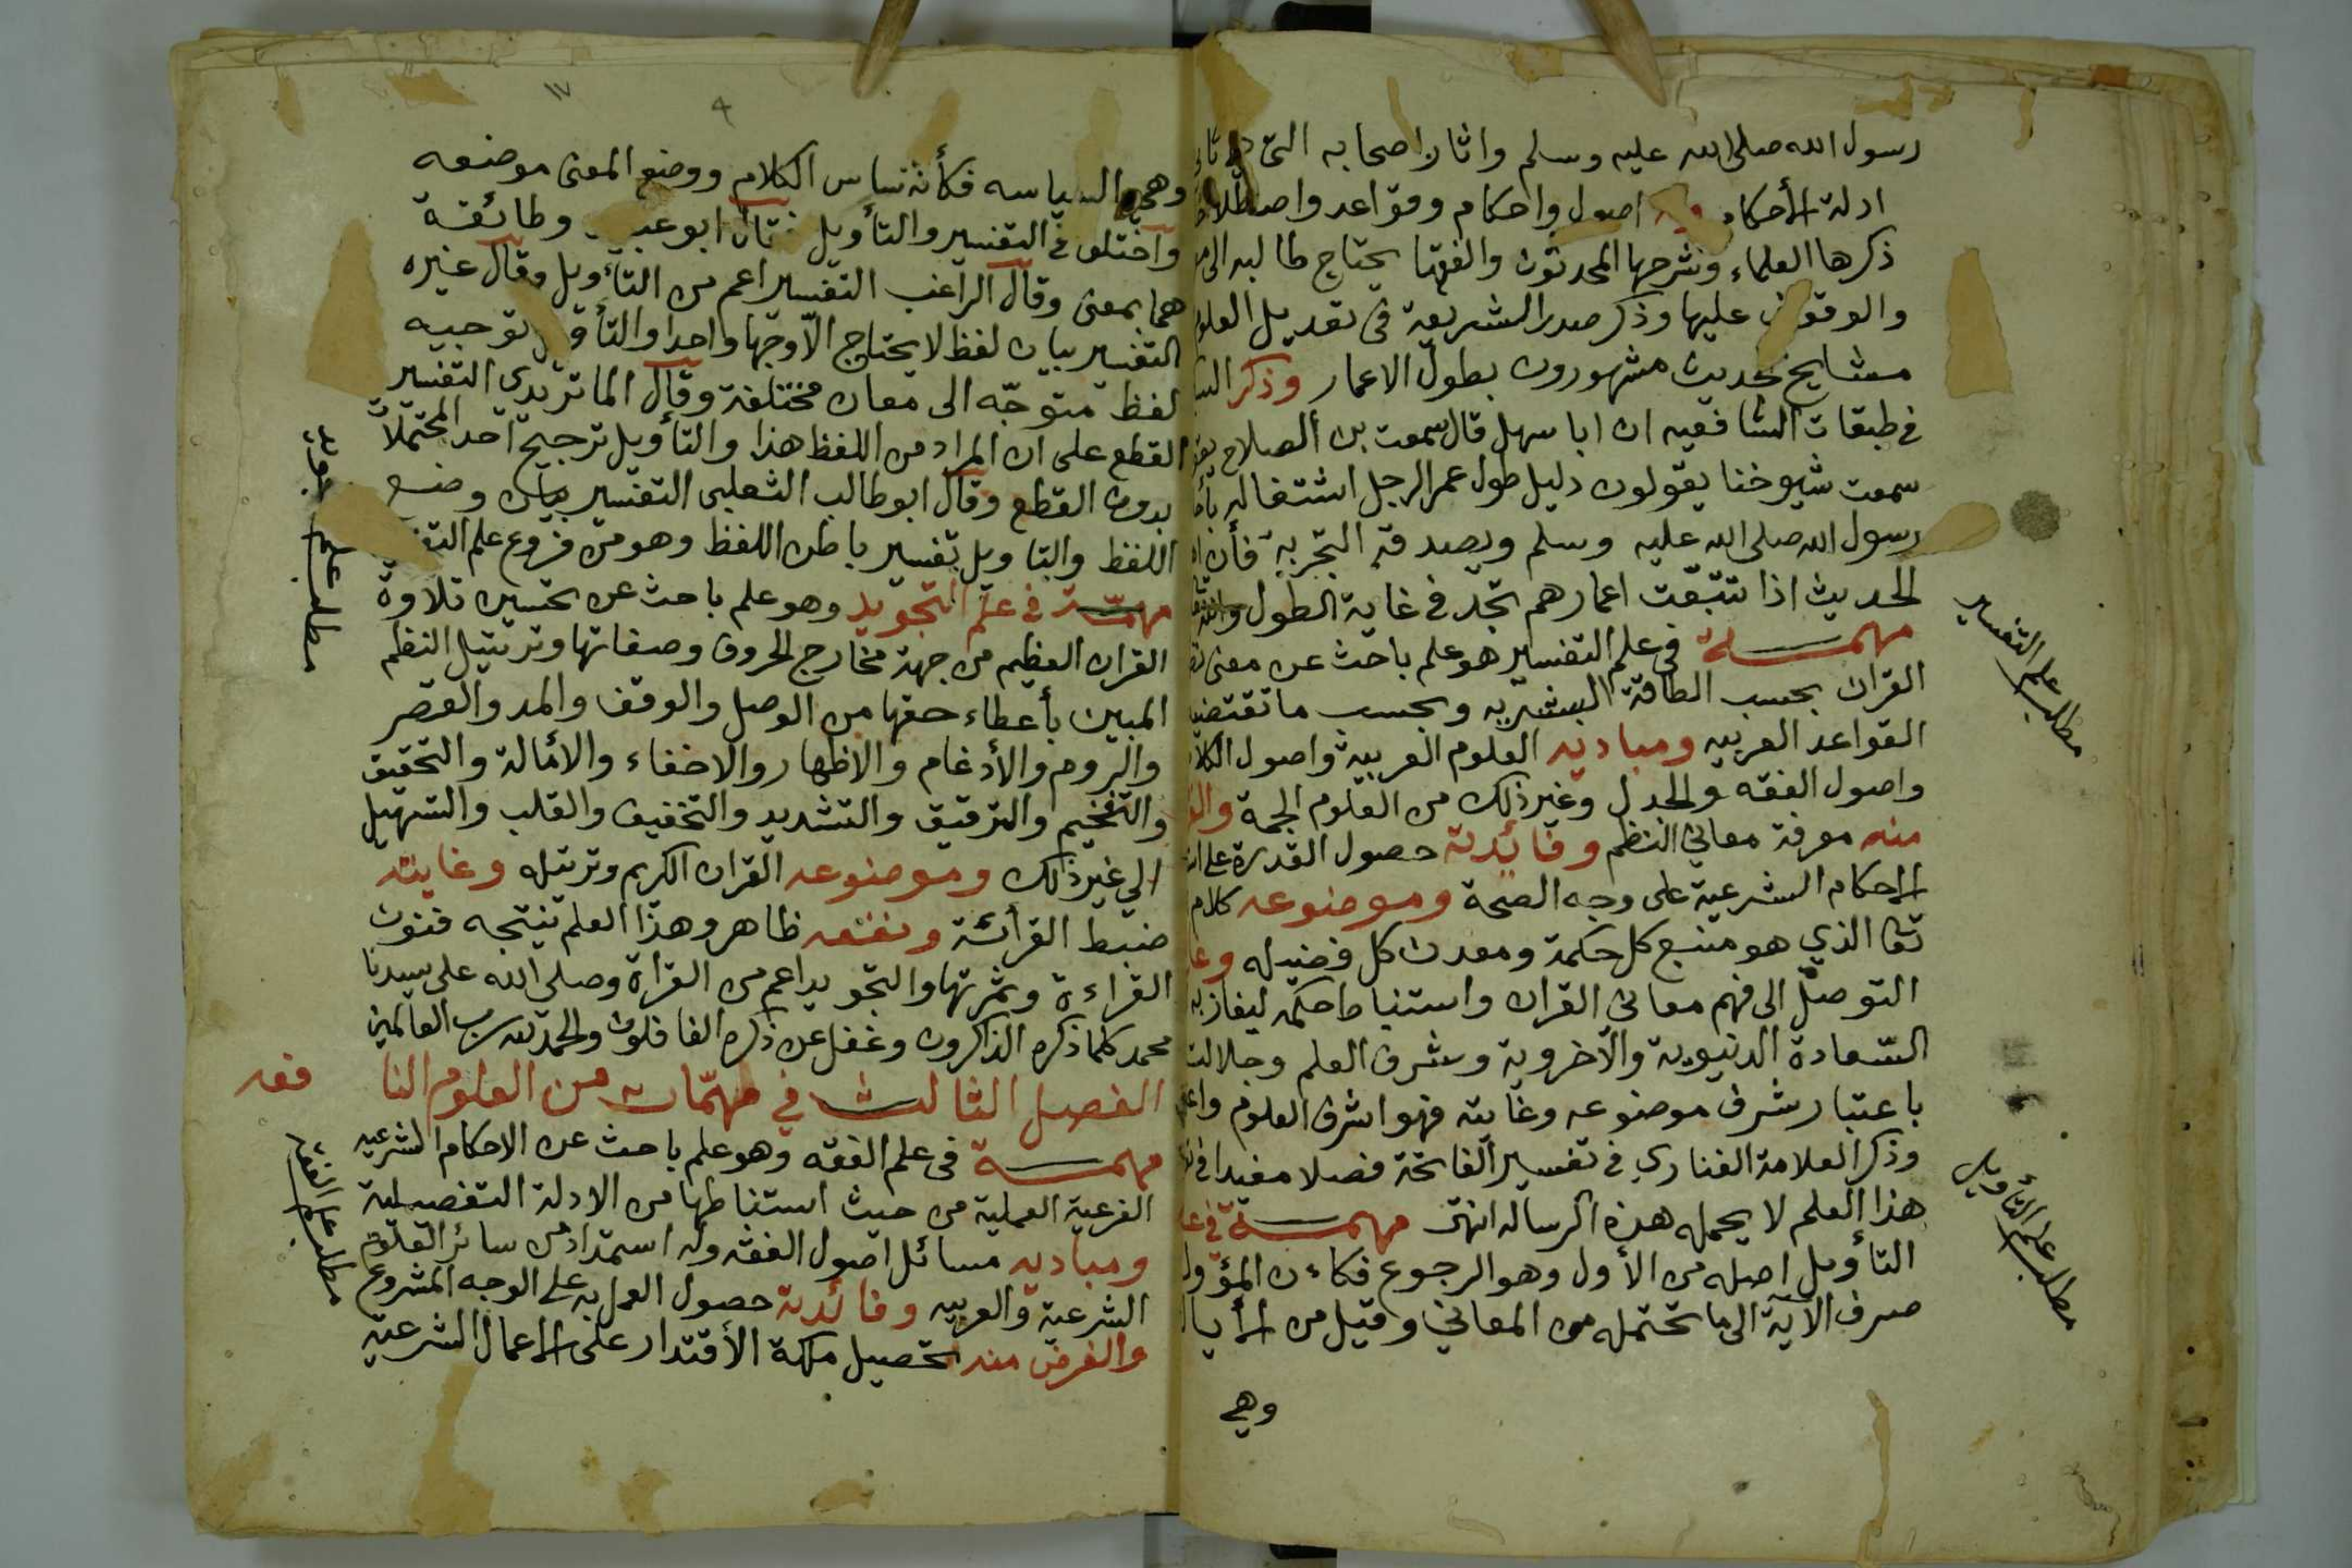 رسول الله صلى الله عليه وسلم واثار اصحابه التى
ادلة الأحكام وله اصول واحكام وقواعد واصطلاحا
ذكرها العلماء وشرحها المحدثون والفقها يحتاج طالبه الى
والوقوف عليها وذكر صدر الشريعة فى تعديل العلوم
مشايخ الحديث مشهورون بطول الاعمار وذكر
فى طبقات الشافعيه ان ابا سهل قال سمعت بن الصلاح يقو
سمعت شيوخنا يقولون دليل طول عمر الرجل اشتغاله
رسول الله صلى الله عليه وسلم ويصدقه التجربه فأن
الحديث اذا تتبّعت اعمارهم تجد فى غاية الطول
مهمـــة في علم التفسير هو علم باحث عن معنى
القران بحسب الطاقة البشريه وبحسب ما تقتضيه
القواعد العربيه ومباديه العلوم العربية واصول الكلا
واصول الفقه والجدل وغير ذلك من العلوم الجمة
منه معرفة معاني النظم وفائدته حصول القدرة على
الاحكام الشرعية على وجه الصحة وموضوعه كلام
تعا الذي هو منبع كل حكمة ومعدن كل فضيله
التوصّل الى فهم معاني القران واستنباط حكمه ليفاز به
السّعادة الدنيوية والآخروية وشرف العلم وجلالته
باعتبار شرف موضوعه وغايته فهو اشرف العلوم
وذكر العلامة الفناري فى تفسير الفاتحة فصلا مفيدا فى
هذا العلم لا يحمله هذه الرساله انتهى مهمـــة فى
التأويل اصله من الأول وهو الرجوع فكاءن المؤول
صرف الآية الى ما تحتمله من المعاني وقيل من الأيا
وهي
مطلب علم التفسير
مطلب علم التأويل
١٧
وهي السياسه فكأنه ساس الكلام ووضع المعنى موضعه
واختلف فى التفسير والتأويل فقال ابو عبيد وطائفة
هما بمعنى وقال الراغب التفسير اعم من التأويل وقال غيره
التفسير بيان لفظ لا يحتاج الّا وجها واحدا والتأويل توجيه
لفظ متوجّه الى معان مختلفة وقال الماتريدى التفسير
القطع على ان المراد من اللفظ هذا والتأويل ترجيح احد المحتملات
بدون القطع وقال ابو طالب الثعلبى التفسير بيان وضع
اللفظ والتاويل تفسير باطن اللفظ وهو من فروع علم التفسير
مهمّـة فى علم التجويد وهو علم باحث عن تحسين تلاوة
القران العظيم من جهة مخارج الحروف وصفاتها وترتيل النظم
المبين بأعطاء حقها من الوصل والوقف والمد والقصر
والروم والأدغام والاظهار والاخفاء والأمالة والتحقيق
والتفخيم والترقيق والتشديد والتخفيف والقلب والتسهيل
الي غير ذلك وموضوعه القران الكريم وترتله وغايته
ضبط القرأئة ونفعه ظاهر وهذا العلم ينتجه فنون
القراءة وثمرتها والتجويد اعم من القرأة وصلى الله على سيدنا
محمد كلما ذكره الذاكرون وغفل عن ذكره الغافلون والحمد لله رب العالمين
الفصل الثالث في مهمّات من العلوم النا فعه
مهمـــة فى علم الفقه وهو علم باحث عن الاحكام الشرعيه
الفرعية العملية من حيث استنباطها من الادلة التفصيلية
ومباديه مسائل اصول الفقه وله استمداد من سائر العلوم
الشرعية والعربيه وفائدته حصول العمل به على الوجه المشروع
والغرض منه تحصيل ملكة الأقتدار على الاعمال الشرعية
مطلب علم تجويد
مطلب علم الفقه